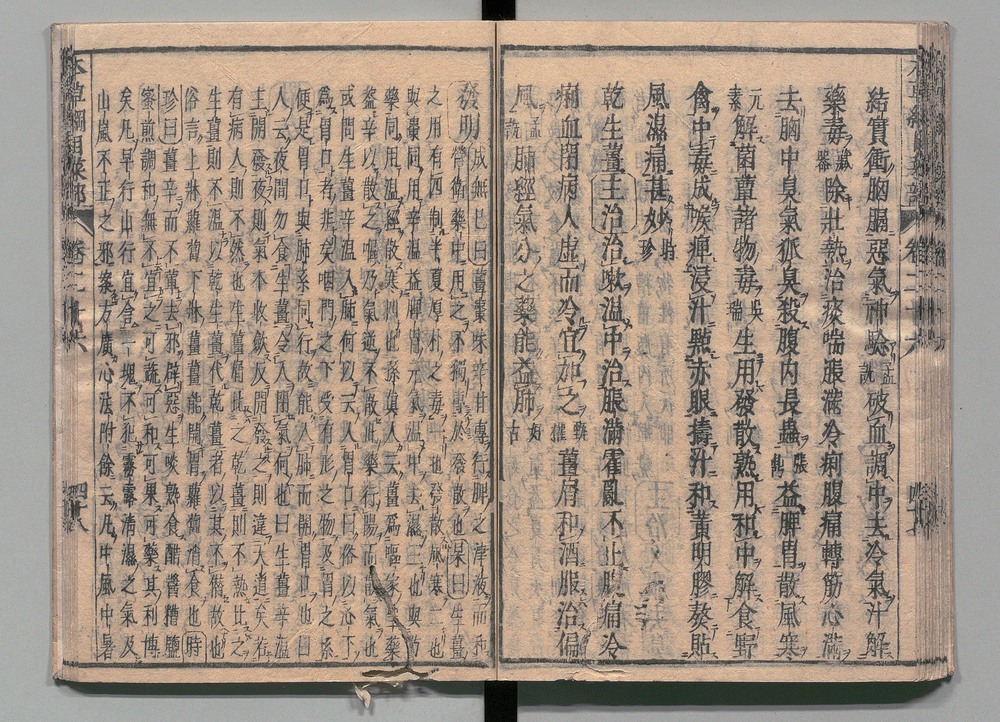 結實衝胸膈惡氣神驗 孟詵 破血調中去冷氣汁解
藥毒 藏器 除壯熱治痰喘脹滿冷痢腹痛轉筋心滿
去胸中臭氣狐臭殺腹內長蟲 張鼎 益脾胃散風寒
元素 解菌蕈諸物毒 吳瑞 生用發散熟用和中解食野
禽中毒成喉痺浸汁點赤眼擣汁和黃明膠熬貼
風濕痛甚妙 時珍
乾生薑主治治嗽溫中治脹滿霍亂不止腹痛冷
痢血閉病人虛而冷宜加之 甄權 薑屑和酒服治偏
風 孟詵 肺經氣分之藥能益肺 好古
發明 成無已曰薑棗味辛甘專行脾之津液而和
營衛藥中用之不獨專於發散也杲曰生薑
之用有四制半夏厚朴之毒一也發散風寒二也
與棗同用辛溫益脾胃元氣溫中去濕三也與芍
藥同用溫經散寒四也孫真人云薑為嘔家聖藥
蓋辛以散之嘔乃氣逆不散此藥行陽而散氣也
或問生薑辛溫入肺何以云入胃口曰俗以心下
為胃口者非矣咽門之下受有形之物及胃之系
便是胃口與肺系同行故能入肺而開胃口也曰
人云夜間勿食生薑令人閉氣何也曰生薑辛溫
主開發夜則氣本收斂反開發之則違天道矣若
有病人則不然也生薑屑比之乾薑則不熱比之
生薑則不濕以乾生薑代乾薑者以其不僭故也
俗言上牀蘿蔔下牀薑薑能開胃蘿蔔消食也時
珍曰薑辛而不葷去邪辟惡生啖熟食醋醬糟鹽
蜜煎調和無不宜之可蔬可和可果可藥其利博
矣凡早行山行宜含一塊不犯霧露清濕之氣及
山嵐不正之邪案方廣心法附餘云凡中風中暑